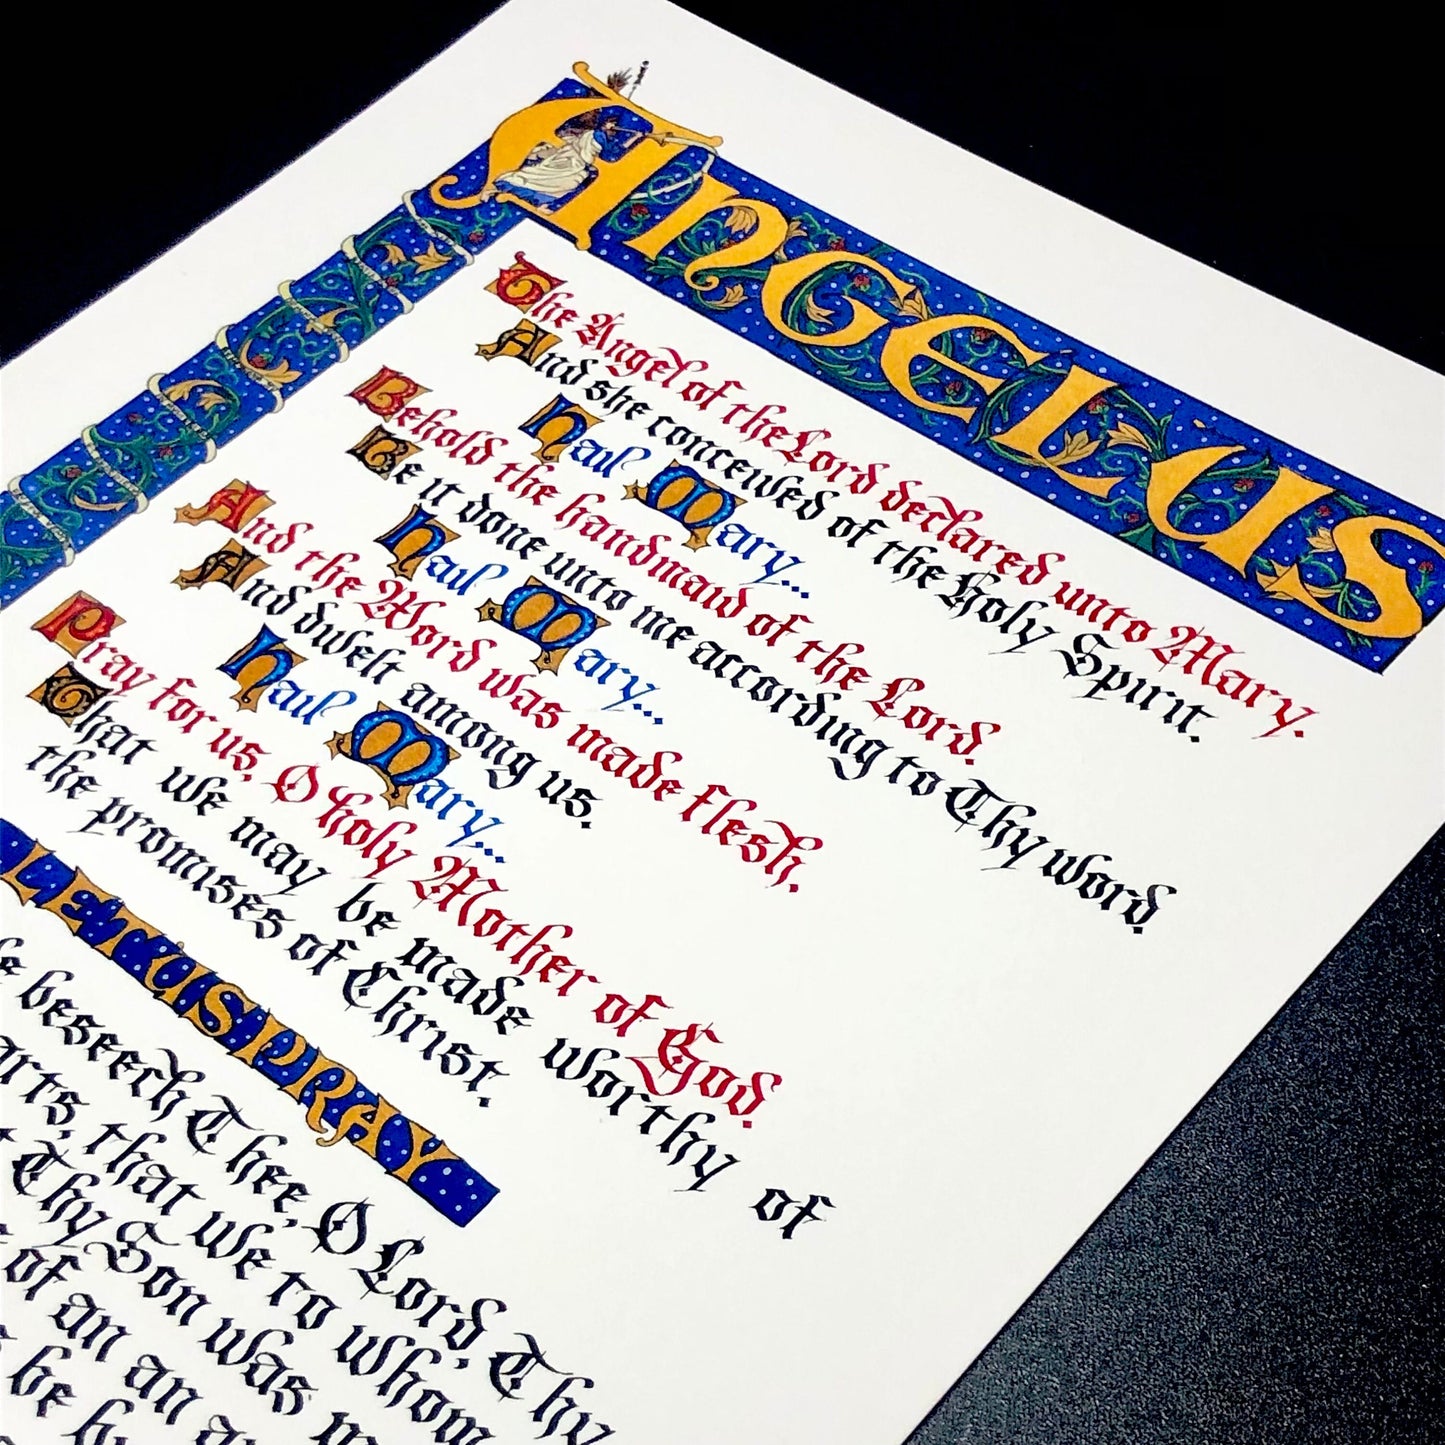 ANGELUS
The Angel of the Lord declared unto Mary.
And she conceived of the Holy Spirit.
Hail Mary...
Behold the handmaid of the Lord.
Be it done unto me according to Thy word.
Hail Mary...
And the Word was made flesh.
And dwelt among us.
Hail Mary...
Pray for us, O holy Mother of God.
That we may be made worthy of
the promises of Christ.
LET US PRAY
beseech Thee, O Lord, Thy
that we to whom
Thy Son was
of an an
be